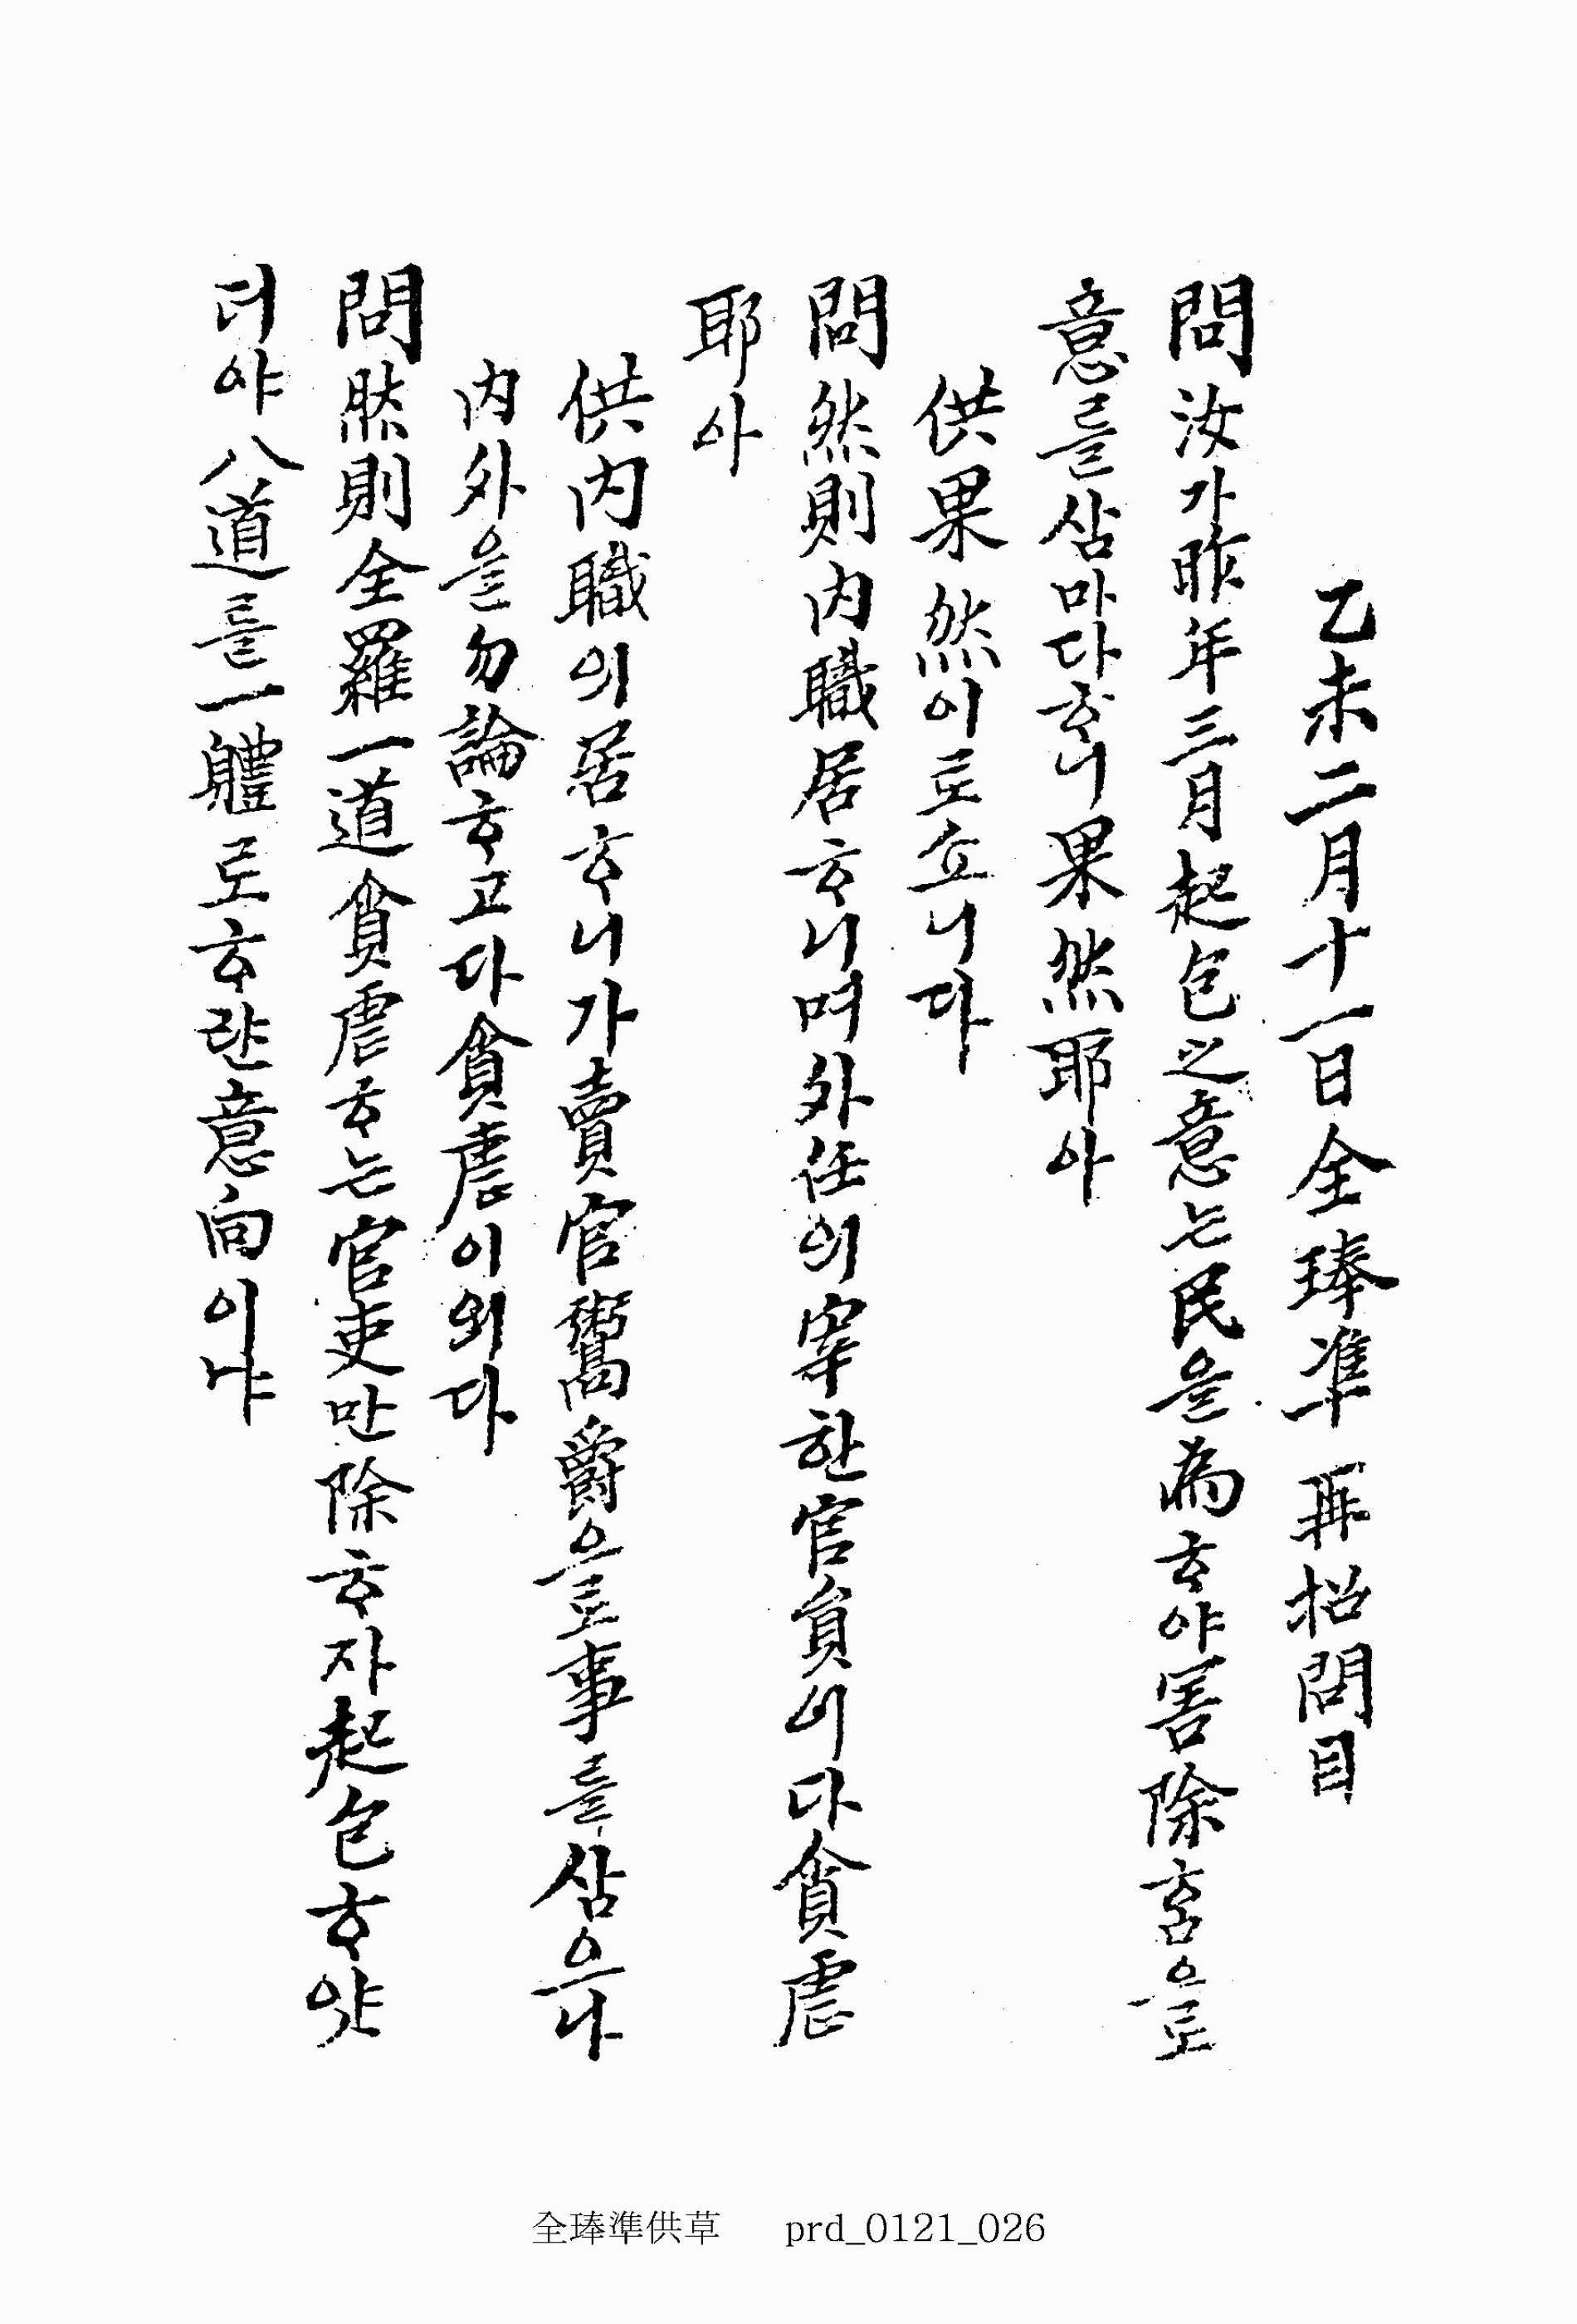 乙未二月十一日全琫準 再招問目
問汝가昨年三月起包之意는民을為ᄒᆞ야害除ᄒᆞᆷ으로
意를삼마다ᄒᆞ니果然耶아
供果然이로소니다
問然則内職居ᄒᆞ니며外任의宰한官員이다貪虐
耶아
供内職의居ᄒᆞ니가賣官鬻爵으로事를삼으나
内外을勿論ᄒᆞ고다貪虐이외다
問然則全羅一道貪虐ᄒᆞ는官吏만除ᄒᆞ자起包ᄒᆞ얏
더야八道를一體로ᄒᆞ랸意向이냐
全琫準供草 prd_0121_026